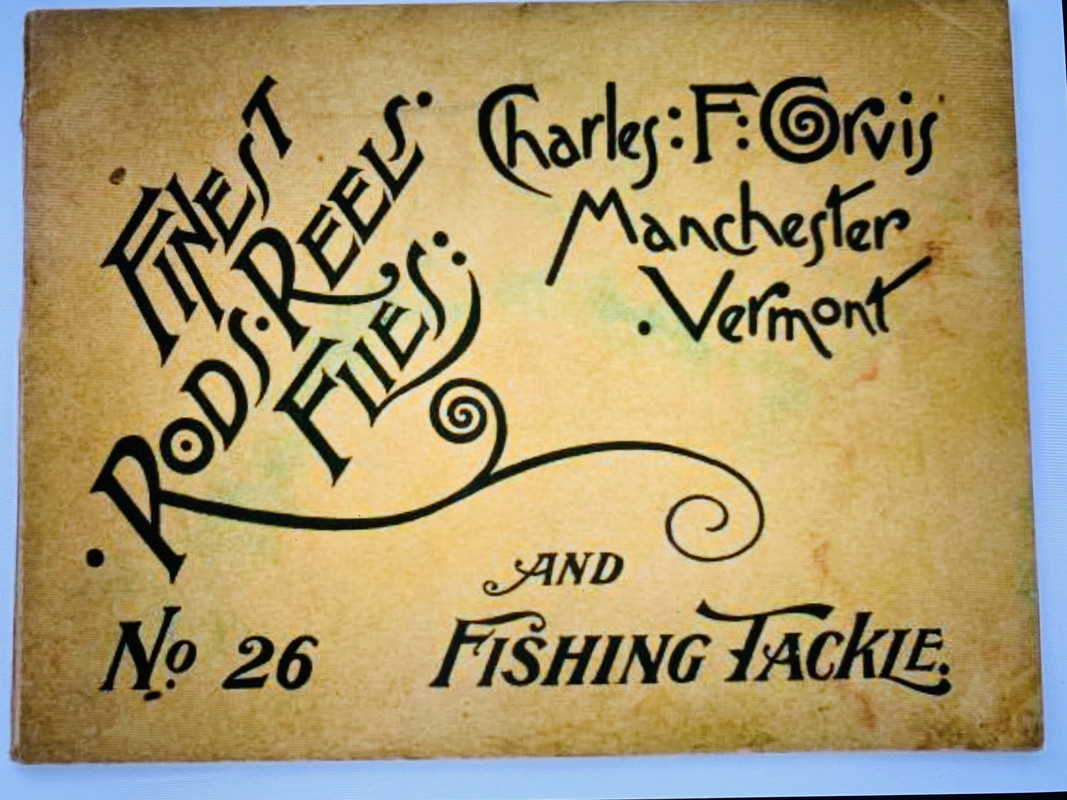 FINEST
RODS· REELS·
FLIES:
Charles: F: Orvis
Manchester
·Vermont
AND
FISHING TACKLE.
No. 26